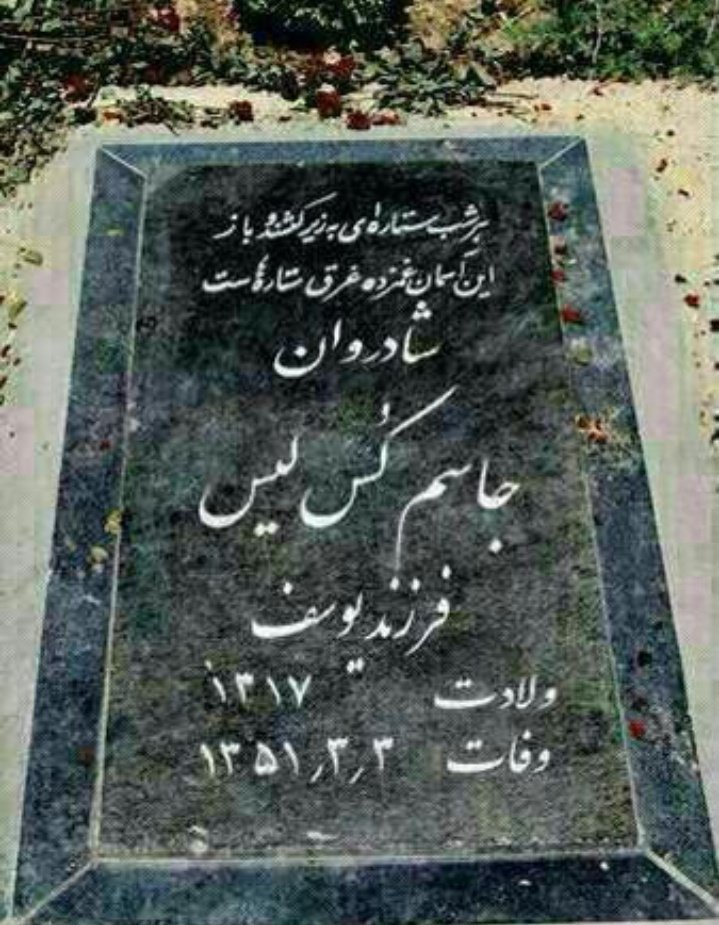 هر شب ستاره‌ای به زیر کشند و باز
این آسمان غمزده غرق ستاره‌هاست
شادروان
جاسم کُس لیس
فرزند یوسف
ولادت ۱۳۱۷
وفات ۱۳۵۱٫۳٫۳